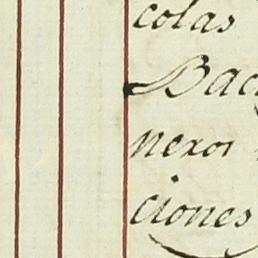 colas
Bac
nexos
ciones